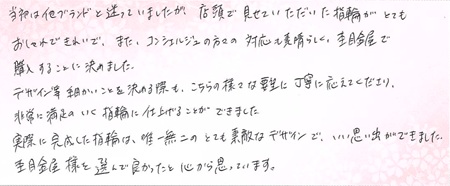 当初は他ブランドと迷っていましたが、店頭で見せていただいた指輪がとても
おしゃれできれいで、また、コンシェルジュの方々の対応も素晴らしく、杢目金屋で
購入することに決めました。
デザイン等細かいことを決める際も、こちらの様々な要望に丁寧に応えてくださり、
非常に満足のいく指輪に仕上げることができました
実際に完成した指輪は、唯一無二のとても素敵なデザインで、いい思い出ができました。
杢目金屋様を選んで良かったと心から思っています。